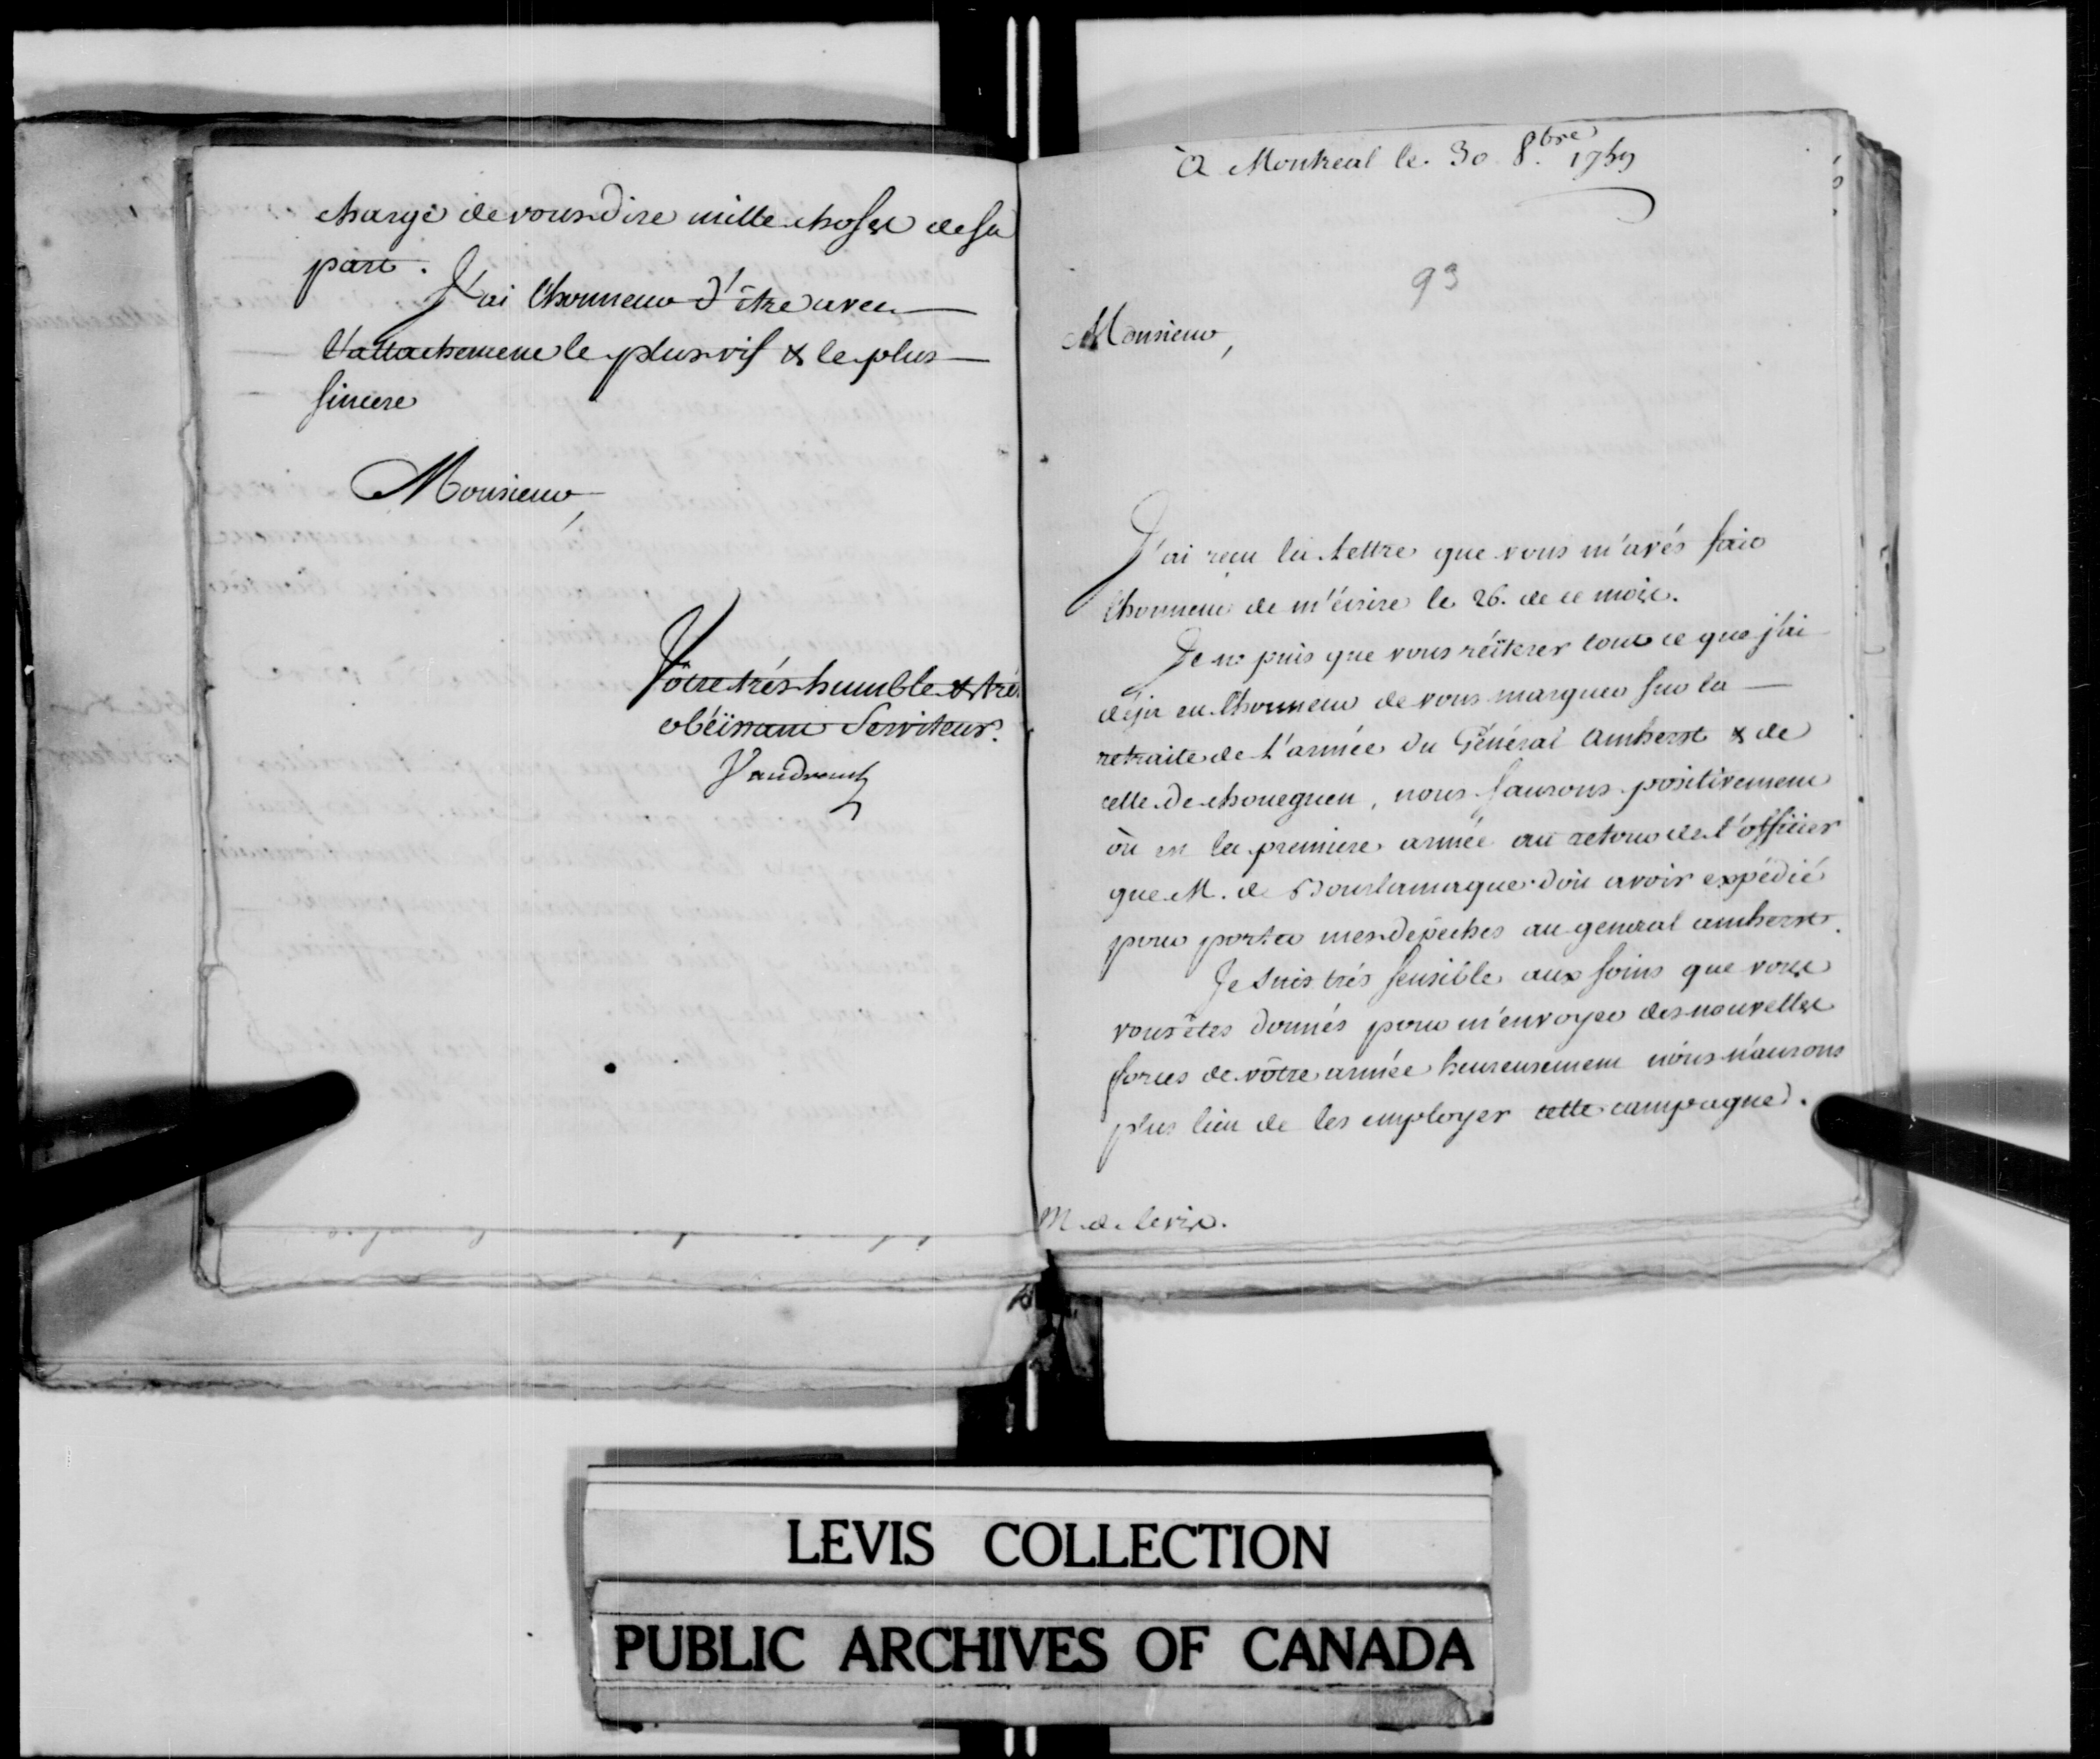 chargé de vous dire mille choses de sa
part.
J'ai l'honneur d'être avec
l'attachement le plus vif & le plus
sincere
Monsieur,
Vôtre trés humble & trés
obéissant Serviteur.
Vaudreuil
à Montreal le. 30 8.bre 1759
93
Monsieur,
J'ai reçu la lettre que vous m'avés fait
l'honneur de m'écrire le 26. de ce mois.
Je ne puis que vous réïterer tout ce que j'ai
déja eu l'honneur de vous marquer sur la
retraite de l'armée du Général Amherst & de
celle de choueguen, nous saurons positivement
où est la premiere armée au retour de l'officier
que M. de Bourlamaque doit avoir expédié
pour porter mes dépêches au general amherst.
Je suis trés sensible aux soins que vous
vous êtes donnés pour m'envoyer des nouvelles
forces de vôtre armée heureusement nous n'aurons
plus lieu de les employer cette campagne.
M. de Levis.
LEVIS COLLECTION
PUBLIC ARCHIVES OF CANADA